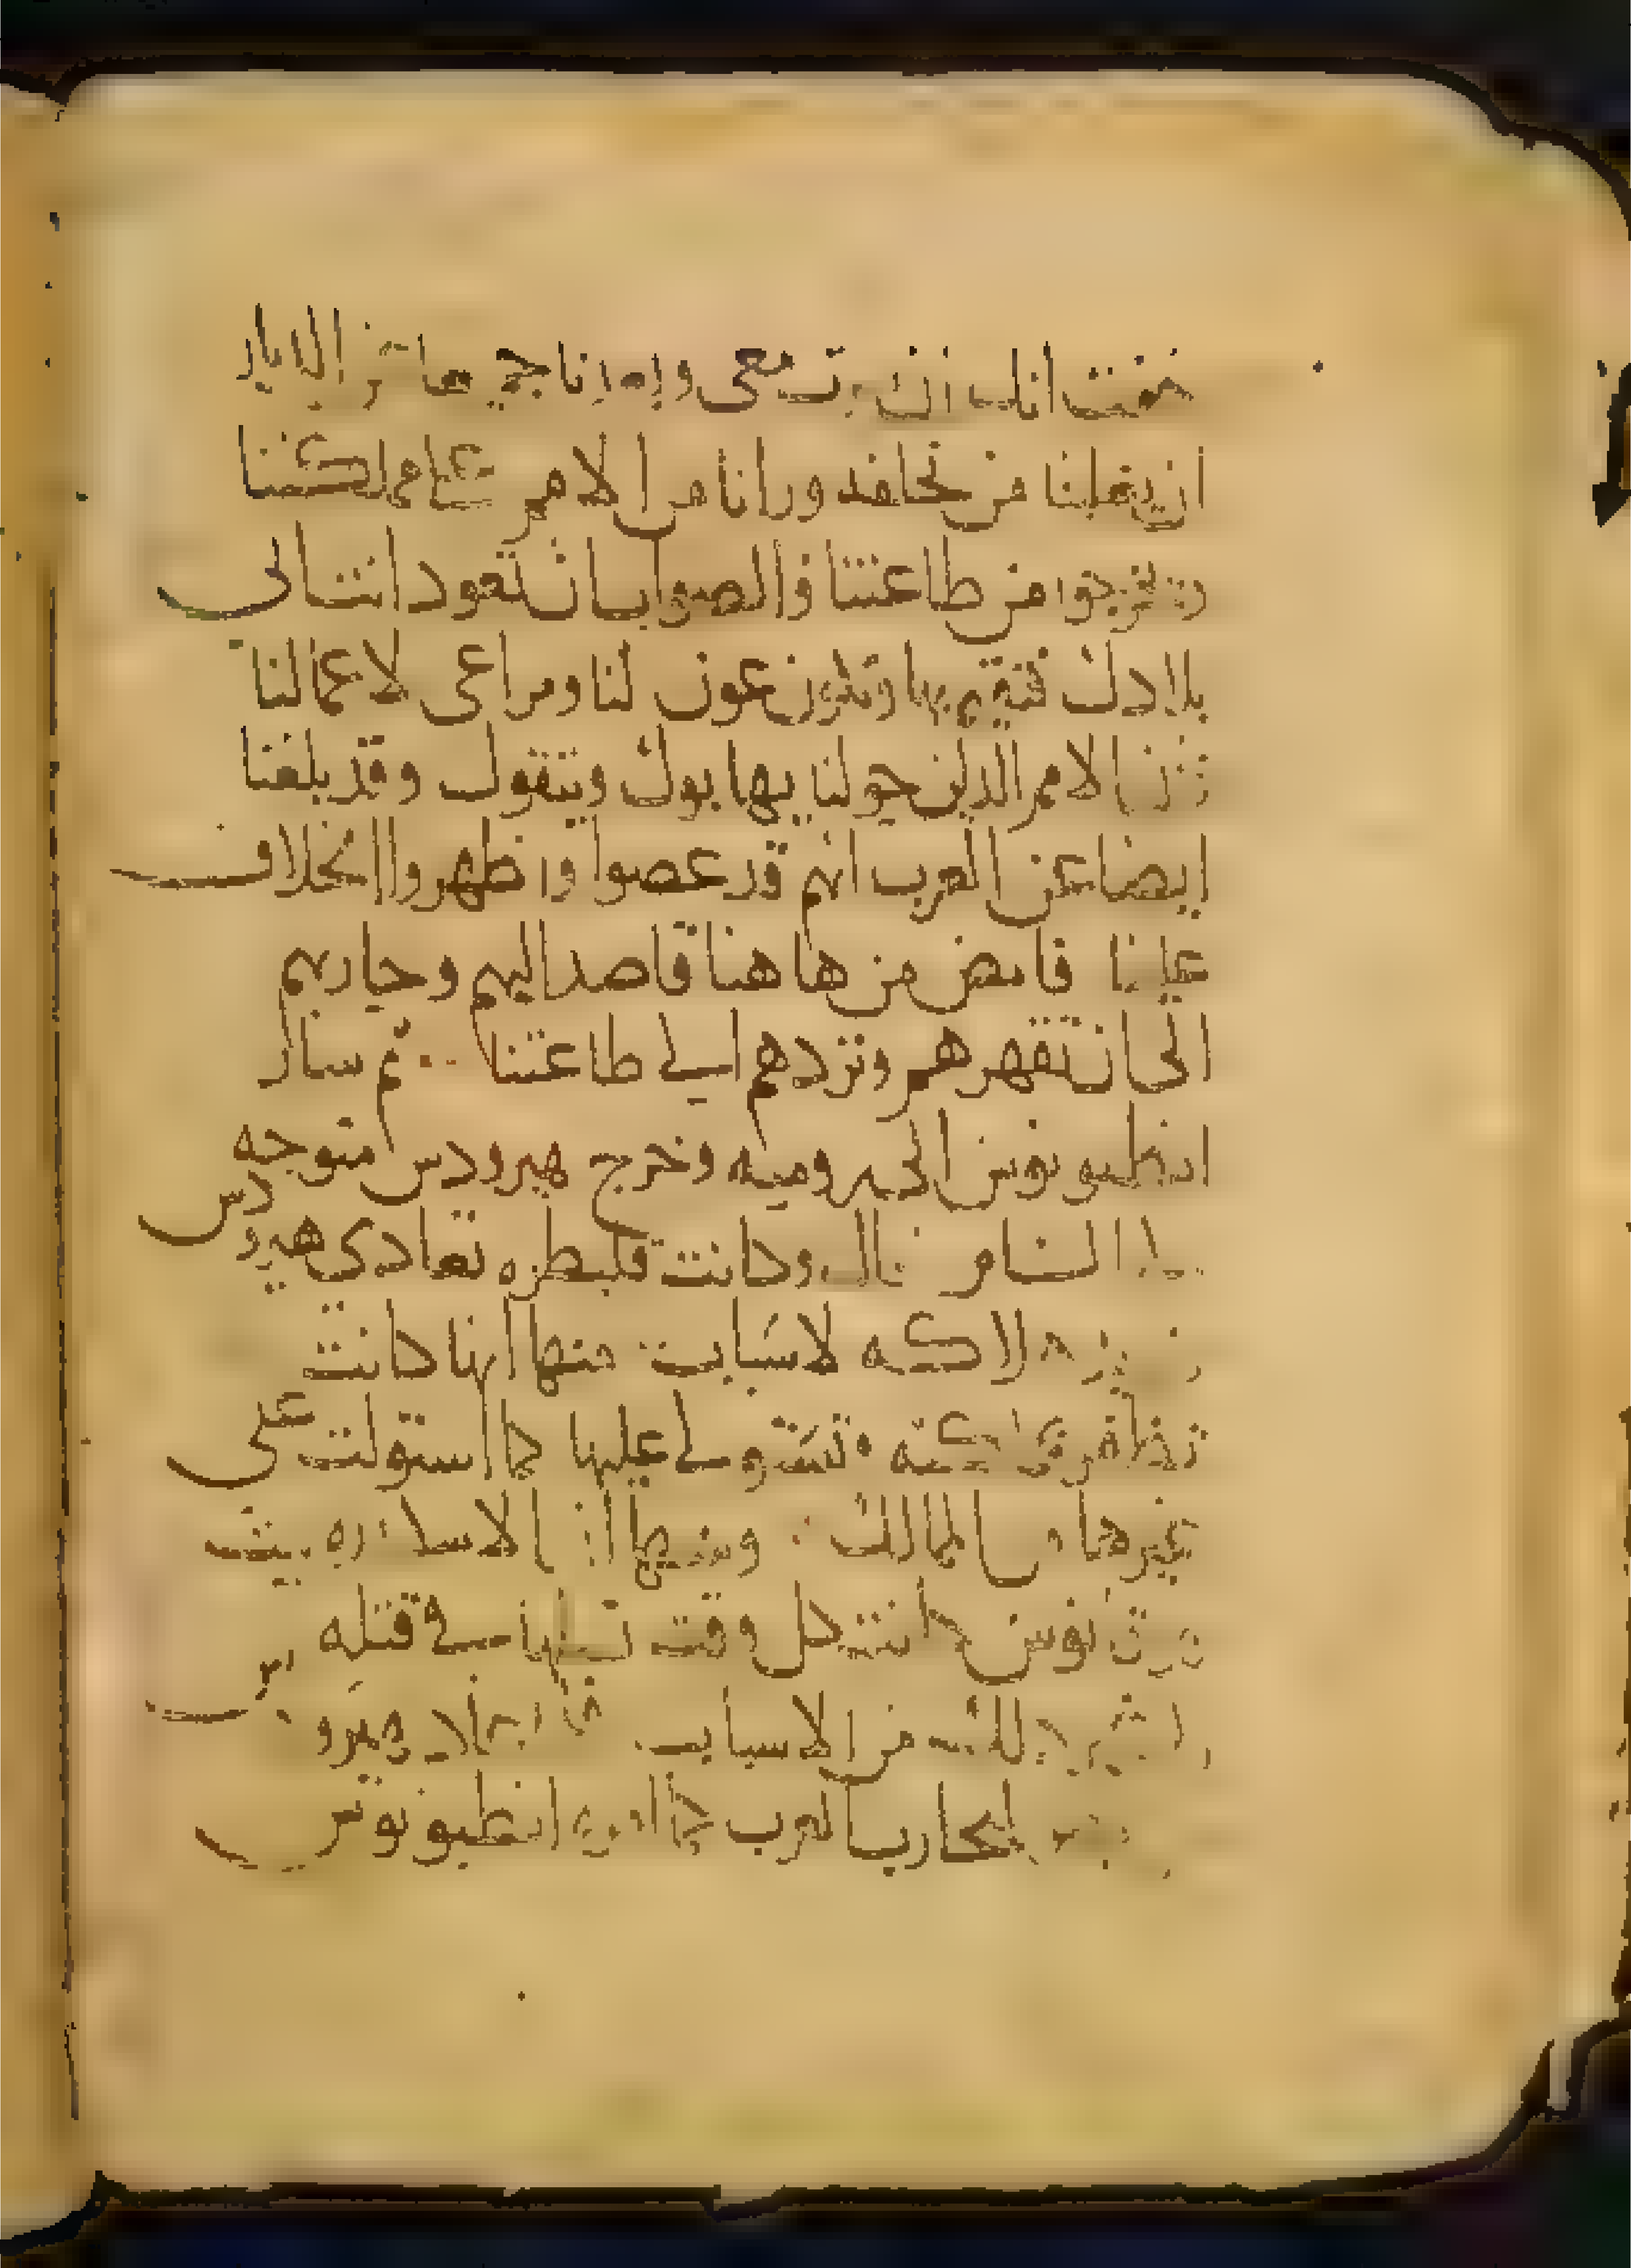 خفت انك ان سرت معي وبعدنا جميعا عن البلاد
ان يغلبنا من نخافه ورانا من الامم على مملكتنا
ويخرجوا من طاعتنا فالصواب ان تعود انت الى
بلادك فتقيم بها وتكون عون لنا ومراعى لاعمالنا
لان الامم الذين حولنا يهابوك ويتقوك وقد بلغنا
ايضا عن العرب انهم قد عصوا واظهروا الخلاف
علينا فامض من هاهنا قاصدا اليهم وحاربهم
الى ان تقهرهم وتردهم الى طاعتنا ثم سار
انطيونوس الى روميه وخرج هيرودس متوجه
الى الشام قال وكانت قلبطره تعادى هيرودس
هلاكه لاسباب منها انها كانت
تستولى عليها كما استولت على
غيرها من الممالك ومنها ان الا
كانت كل وقت في قتله
من الاسباب هيرودس
ليحارب العرب كما امره انطيونوس